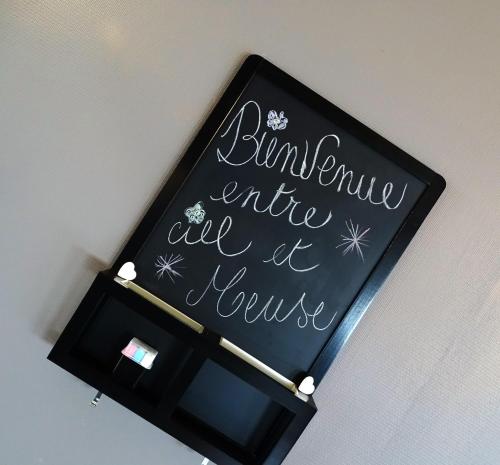 BienVenue
entre
ciel et
Meuse